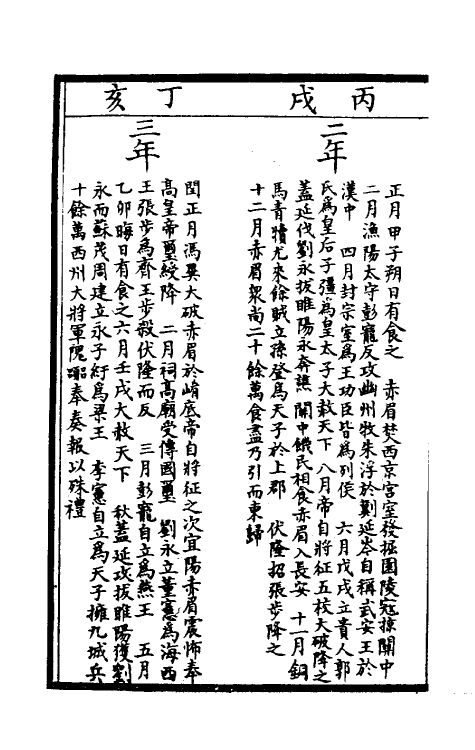 丙戌
二年
正月甲子朔日有食之　赤眉焚西京宮室發掘園陵寇掠關中
二月漁陽太守彭寵反攻幽州牧朱浮於薊延岑自稱武安王於
漢中　四月封宗室爲王功臣皆爲列侯　六月戊戌立貴人郭
氏爲皇后子彊爲皇太子大赦天下八月帝自將征五校大破降之
蓋延伐劉永拔睢陽永奔譙關中饑民相食赤眉入長安　十一月銅
馬青犢尤來餘賊立孫登爲天子於上郡　伏隆招張步降之
十二月赤眉衆尚二十餘萬食盡乃引而東歸
丁亥
三年
閏正月馮異大破赤眉於崤底帝自將征之次宜陽赤眉震怖奉
高皇帝璽綬降　二月祠高廟受傳國璽　劉永立董憲爲海西
王張步爲齊王步殺伏隆而反　三月彭寵自立爲燕王　五月
乙卯晦日有食之六月壬戌大赦天下　秋蓋延攻拔睢陽獲劉
永而蘇茂周建立永子紆爲梁王　李憲自立爲天子擁九城兵
十餘萬西州大將軍隗囂奉奏報以殊禮